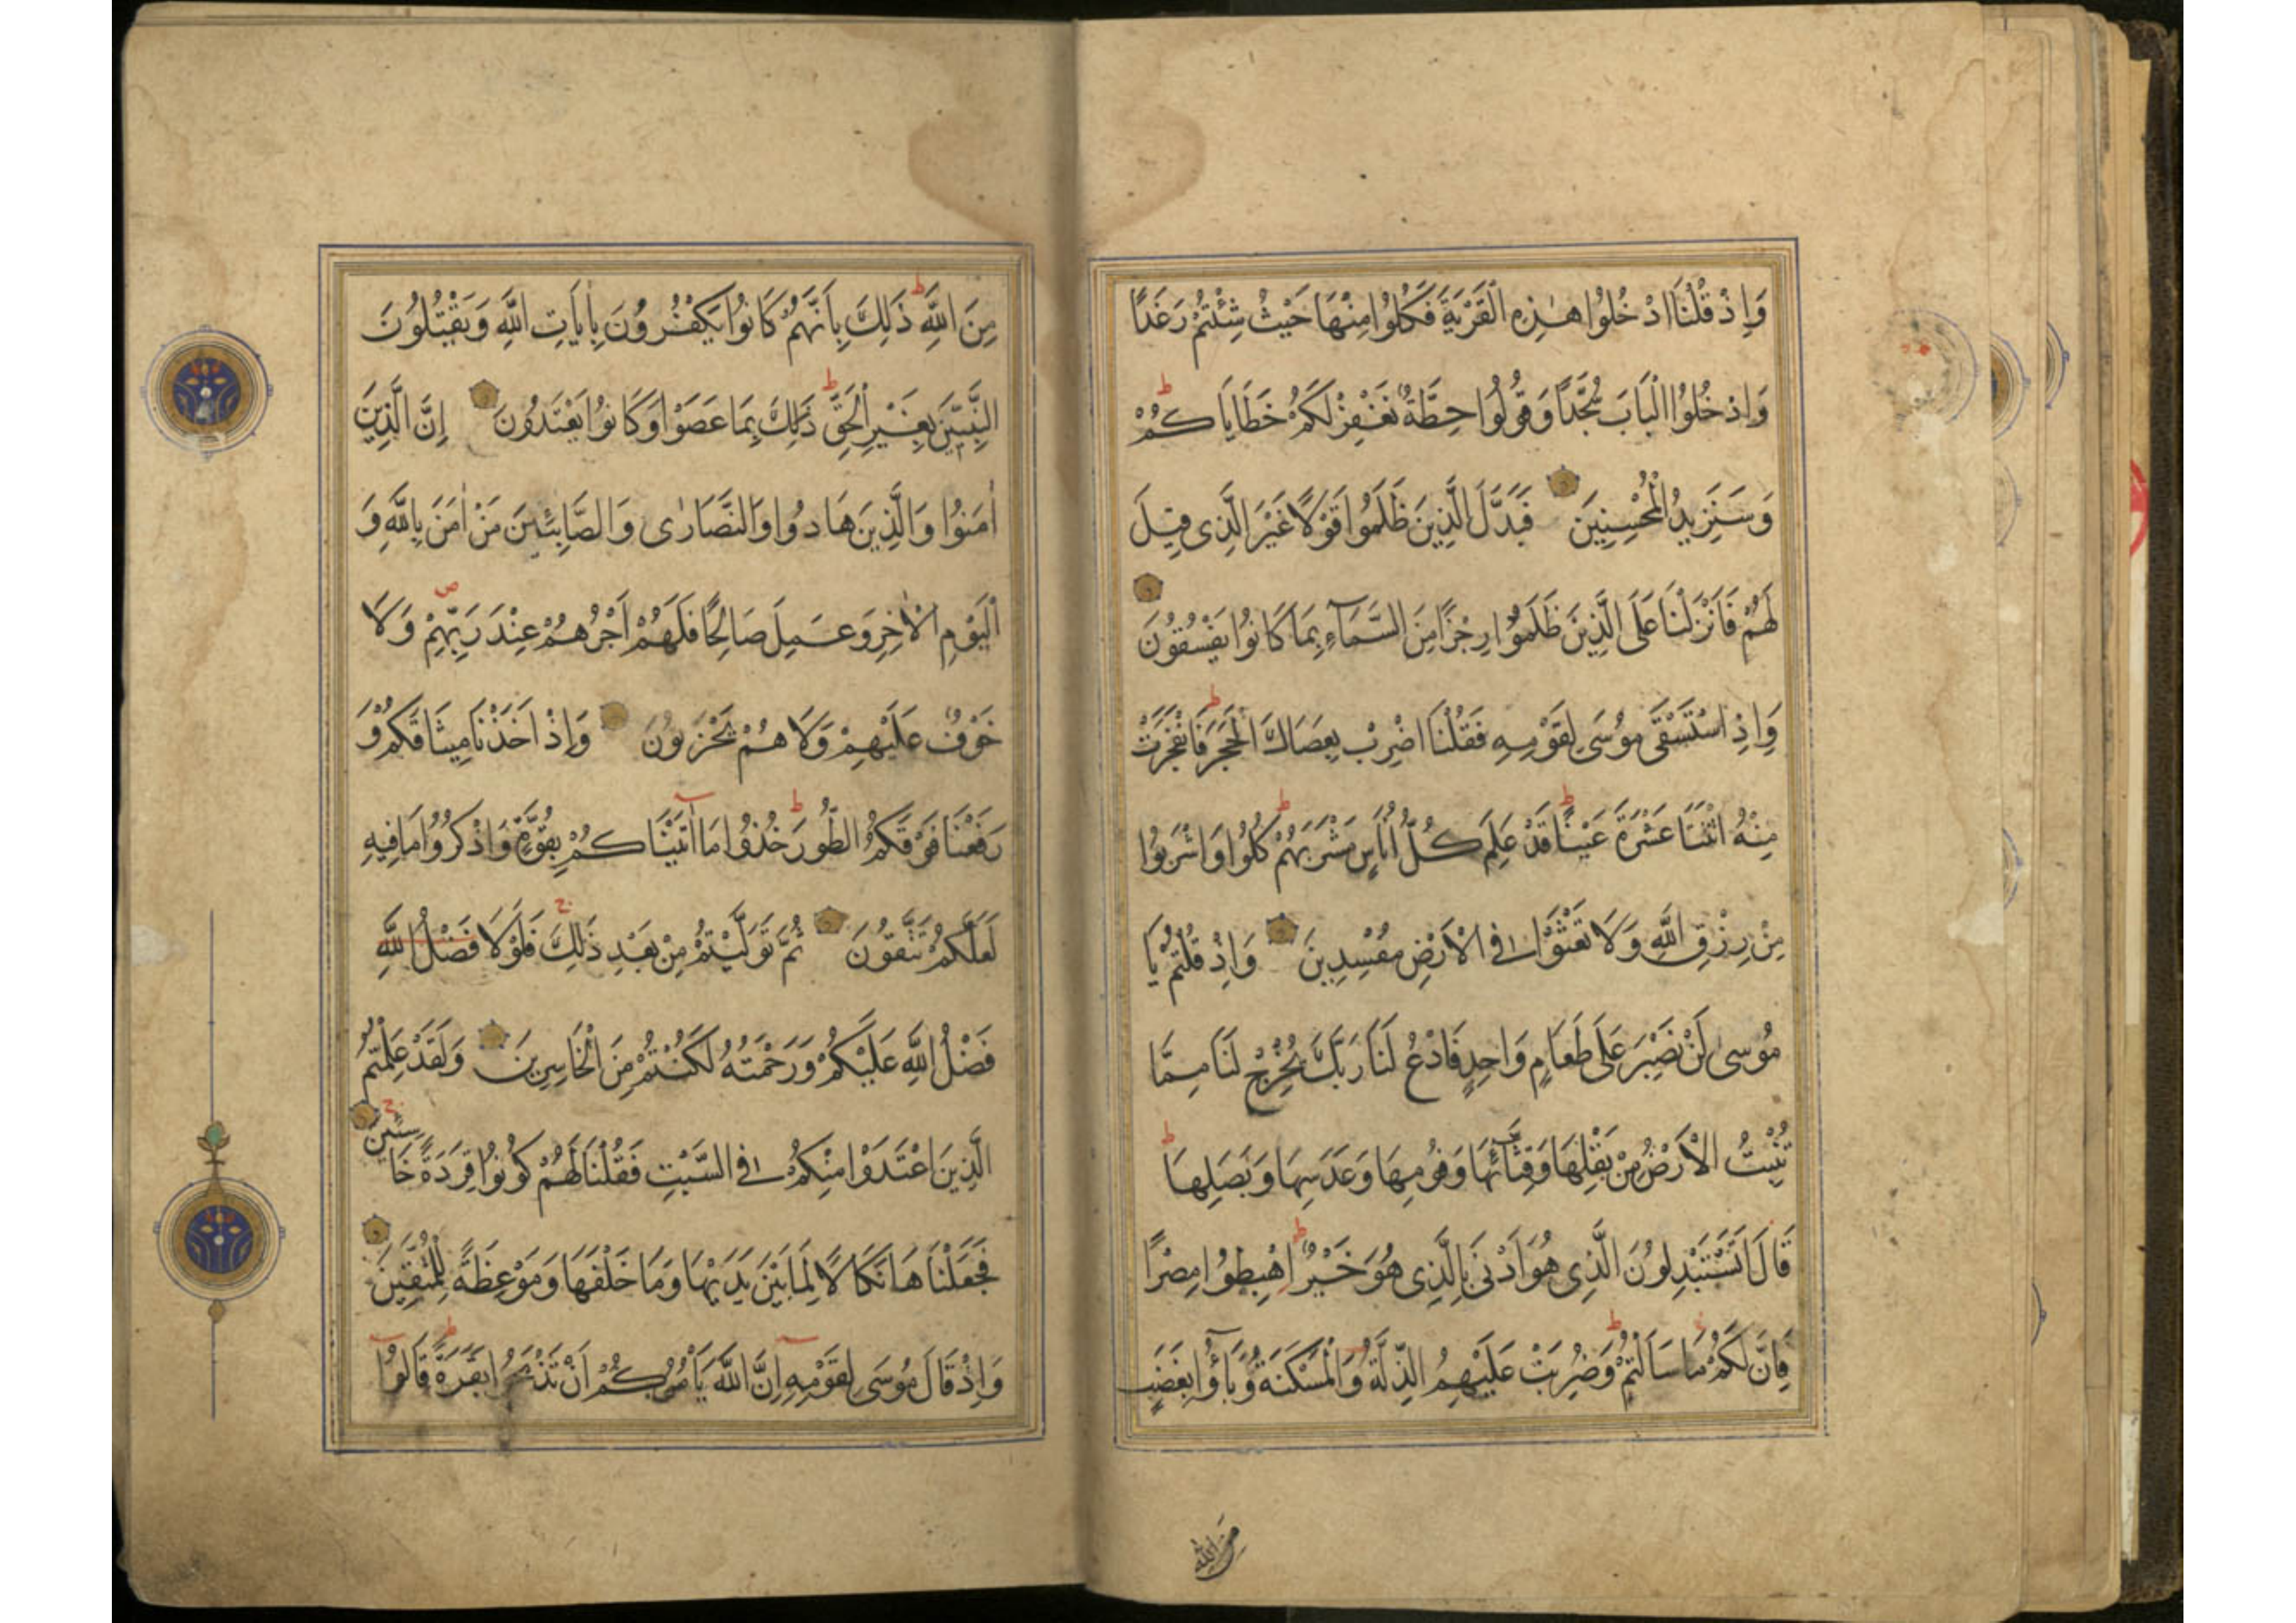 وَاِذْ قُلْنَا ادْخُلُوا هٰذِهِ الْقَرْيَةَ فَكُلُوا مِنْهَا حَيْثُ شِئْتُمْ رَغَدًا
وَادْخُلُوا الْبَابَ سُجَّدًا وَقُولُوا حِطَّةٌ نَغْفِرْ لَكُمْ خَطَايَاكُمْ ط
وَسَنَزِيدُ الْمُحْسِنِينَ فَبَدَّلَ الَّذِينَ ظَلَمُوا قَوْلًا غَيْرَ الَّذِى قِيلَ
لَهُمْ فَاَنْزَلْنَا عَلَى الَّذِينَ ظَلَمُوا رِجْزًا مِنَ السَّمَآءِ بِمَا كَانُوا يَفْسُقُونَ
وَاِذِ اسْتَسْقَى مُوسَى لِقَوْمِهِ فَقُلْنَا اضْرِبْ بِعَصَاكَ الْحَجَرَ ط فَانْفَجَرَتْ
مِنْهُ اثْنَتَا عَشْرَةَ عَيْنًا ط قَدْ عَلِمَ كُلُّ اُنَاسٍ مَشْرَبَهُمْ ط كُلُوا وَاشْرَبُوا
مِنْ رِزْقِ اللَّهِ وَلَا تَعْثَوْا فِى الْاَرْضِ مُفْسِدِينَ وَاِذْ قُلْتُمْ يَا
مُوسٰى لَنْ نَصْبِرَ عَلَى طَعَامٍ وَاحِدٍ فَادْعُ لَنَا رَبَّكَ يُخْرِجْ لَنَا مِمَّا
تُنْبِتُ الْاَرْضُ مِنْ بَقْلِهَا وَقِثَّآئِهَا وَفُومِهَا وَعَدَسِهَا وَبَصَلِهَا ط
قَالَ اَتَسْتَبْدِلُونَ الَّذِى هُوَ اَدْنَى بِالَّذِى هُوَ خَيْرٌ ط اِهْبِطُوا مِصْرًا
فَاِنَّ لَكُمْ مَا سَاَلْتُمْ ط وَضُرِبَتْ عَلَيْهِمُ الذِّلَّةُ وَالْمَسْكَنَةُ وَبَآؤُا بِغَضَبٍ
مِنَ اللَّه
مِنَ اللَّهِ ط ذَلِكَ بِاَنَّهُمْ كَانُوا يَكْفُرُونَ بِاٰيَاتِ اللَّهِ وَيَقْتُلُونَ
النَّبِيّٖنَ بِغَيْرِ الْحَقِّ ط ذَلِكَ بِمَا عَصَوْا وَكَانُوا يَعْتَدُونَ اِنَّ الَّذِينَ
اٰمَنُوا وَالَّذِينَ هَادُوا وَالنَّصَارٰى وَالصَّابِئِينَ مَنْ اٰمَنَ بِاللَّهِ وَ
الْيَوْمِ الْاٰخِرِ وَعَمِلَ صَالِحًا فَلَهُمْ اَجْرُهُمْ عِنْدَ رَبِّهِمْ ص وَلَا
خَوْفٌ عَلَيْهِمْ وَلَا هُمْ يَحْزَنُونَ وَاِذْ اَخَذْنَا مِيثَاقَكُمْ وَ
رَفَعْنَا فَوْقَكُمُ الطُّورَ ط خُذُوا مَآ اٰتَيْنَاكُمْ بِقُوَّةٍ وَاذْكُرُوا مَا فِيهِ
لَعَلَّكُمْ تَتَّقُونَ ثُمَّ تَوَلَّيْتُمْ مِنْ بَعْدِ ذَلِكَ ج فَلَوْلَا فَضْلُ اللَّهِ
فَضْلُ اللَّهِ عَلَيْكُمْ وَرَحْمَتُهُ لَكُنْتُمْ مِنَ الْخَاسِرِينَ وَلَقَدْ عَلِمْتُمُ
الَّذِينَ اعْتَدَوْا مِنْكُمْ فِى السَّبْتِ فَقُلْنَا لَهُمْ كُونُوا قِرَدَةً خَاسِئِينَ ج
فَجَعَلْنَاهَا نَكَالًا لِمَا بَيْنَ يَدَيْهَا وَمَا خَلْفَهَا وَمَوْعِظَةً لِلْمُتَّقِينَ
وَاِذْ قَالَ مُوسَى لِقَوْمِهِٓ اِنَّ اللَّهَ يَاْمُرُكُمْ اَنْ تَذْبَحُوا بَقَرَةً ط قَالُوٓا